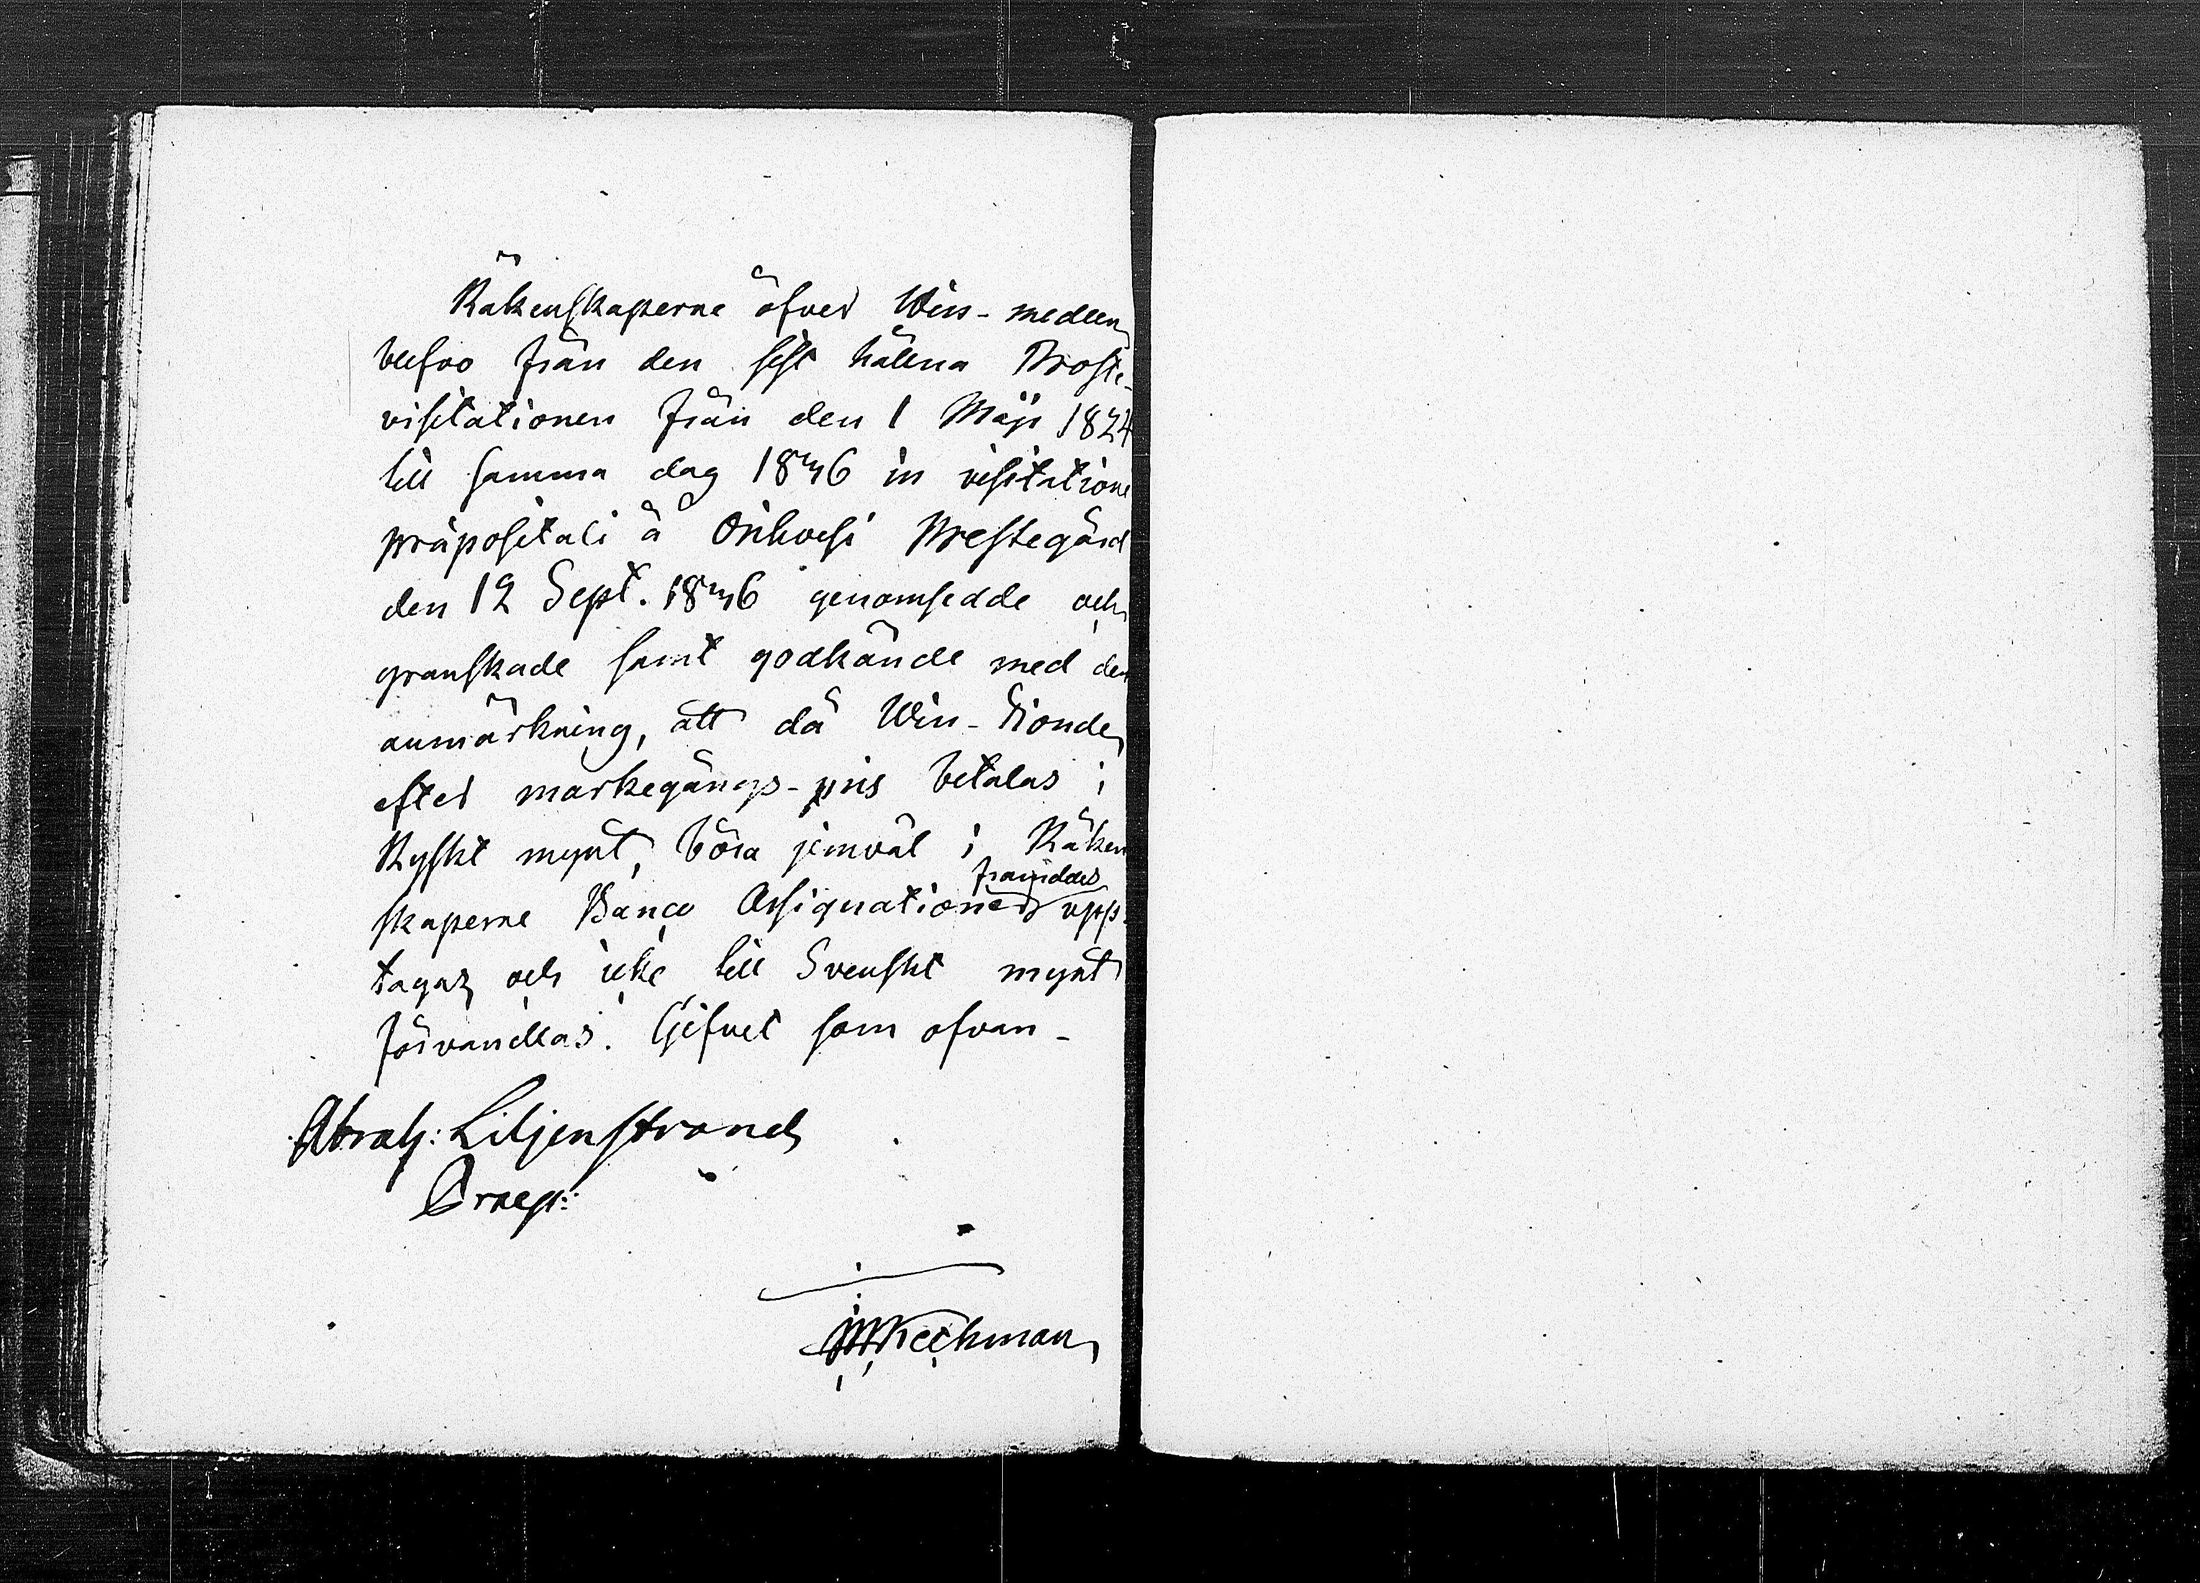 Räkenskaperne öfver Win-medlen
blefvo från den sist hållna Prosti-
visitationen från den 1 Maji 1824
till samma dag 1836 in visitatione
præpositali å Orihvesi Prestegård
den 12 Sept. 1836 genomsedde och
granskade samt godkände med den
anmärkning, att då Win-Tionden
efter markegångs-pris betalas i
Ryskt mynt, böra jemväl i Räken
skaperne Banco Assignationer framdeles upp-
tagas och icke till Svenskt mynt
förvandlas. Gifvet som ofvan-
Abrah: Liljenstrand
Praep: